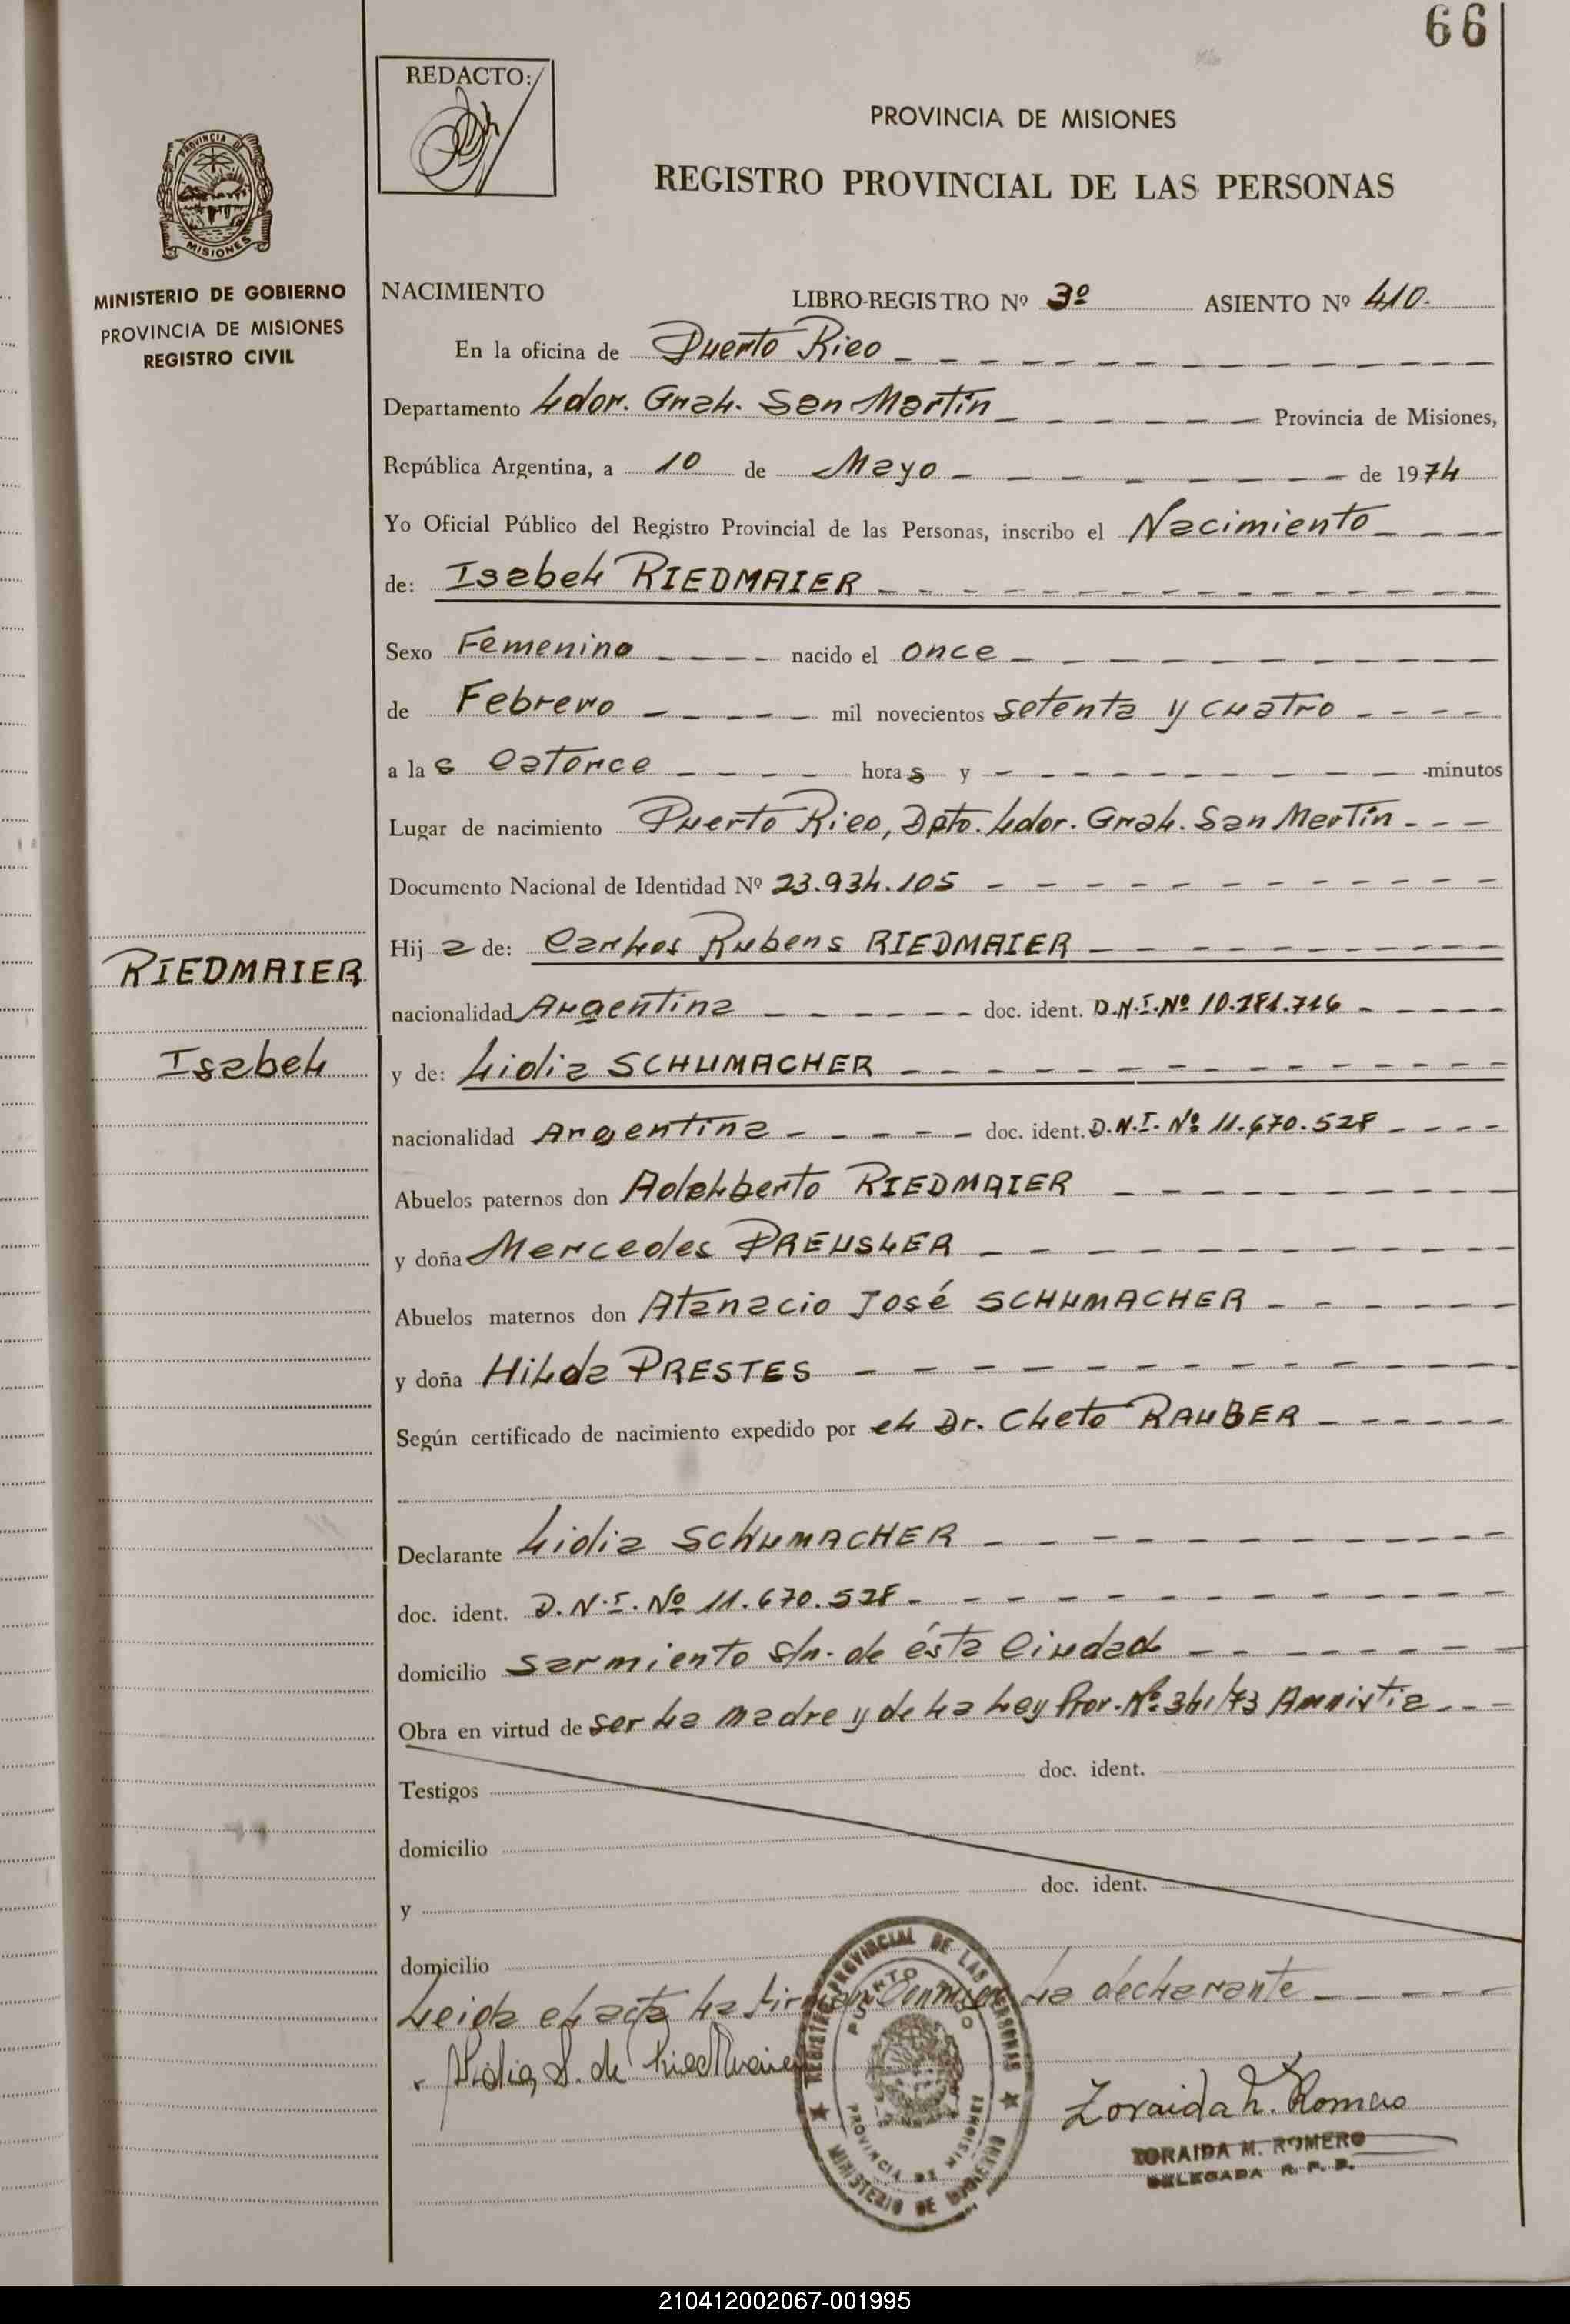 66
REDACTO:
PROVINCIA DE MISIONES
REGISTRO PROVINCIAL DE LAS PERSONAS
PROVINCIA DE
MISIONES
MINISTERIO DE GOBIERNO
PROVINCIA DE MISIONES
REGISTRO CIVIL
NACIMIENTO LIBRO-REGISTRO Nº 3º ASIENTO Nº 410.
En la oficina de Puerto Rico
Departamento Ldor. Gral. San Martín Provincia de Misiones,
República Argentina, a 10 de Mayo de 1974
Yo Oficial Público del Registro Provincial de las Personas, inscribo el Nacimiento
de: Isabel RIEDMAIER
Sexo Femenino nacido el once
de Febrero mil novecientos setenta y cuatro
a las catorce horas y minutos
Lugar de nacimiento Puerto Rico, Dpto. Ldor. Gral. San Martín
Documento Nacional de Identidad Nº 23.934.105
Hija de: Carlos Rubens RIEDMAIER
RIEDMAIER
nacionalidad Argentina doc. ident. D.N.I.Nº 10.281.716
Isabel
y de: Lidia SCHUMACHER
nacionalidad Argentina doc. ident. D.N.I. Nº 11.670.528
Abuelos paternos don Adelberto RIEDMAIER
y doña Mercedes PREUSLER
Abuelos maternos don Atanacio José SCHUMACHER
y doña Hilda PRESTES
Según certificado de nacimiento expedido por el Dr. Cleto RAUBER
Declarante Lidia SCHUMACHER
doc. ident. D.N.I. Nº 11.670.528
domicilio Sarmiento s/n. de ésta Ciudad
Obra en virtud de ser la madre y de la Ley Prov. Nº 341/73 Amnistia
Testigos doc. ident.
domicilio
y doc. ident.
domicilio
Leida el acta la firma Conmigo la declarante
Lidia S. de Riedmaier
REGISTRO PROVINCIAL DE LAS PERSONAS
PUERTO RICO
PROVINCIA DE MISIONES
MINISTERIO DE GOBIERNO
Zoraida M. Romero
ZORAIDA M. ROMERO
DELEGADA R. P. P.
210412002067-001995